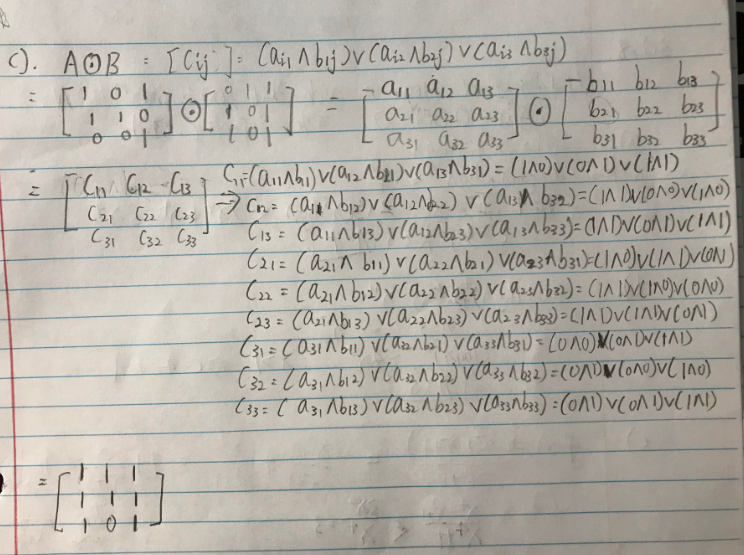 c). A⊙B = [Cij] = (ai1 ∧ b1j) ∨ (ai2 ∧ b2j) ∨ (ai3 ∧ b3j)
= [1 0 1] ⊙ [0 1 1] = [a11 a12 a13] ⊙ [b11 b12 b13]
[1 1 0] [1 0 1] [a21 a22 a23] [b21 b22 b23]
[0 0 1] [1 0 1] [a31 a32 a33] [b31 b32 b33]
= [C11 C12 C13] C11=(a11∧b1)∨(a12∧b21)∨(a13∧b31) = (1∧0)∨(0∧1)∨(1∧1)
[C21 C22 C23] → C12 = (a11∧b12)∨(a12∧b22)∨(a13∧b32)=(1∧1)∨(0∧0)∨(1∧0)
[C31 C32 C33] C13 = (a11∧b13)∨(a12∧b23)∨(a13∧b33)=(1∧1)∨(0∧1)∨(1∧1)
C21 = (a21∧b11)∨(a22∧b21)∨(a23∧b31)=(1∧0)∨(1∧1)∨(0∧1)
C22 = (a21∧b12)∨(a22∧b22)∨(a23∧b32)=(1∧1)∨(1∧0)∨(0∧0)
C23 = (a21∧b13)∨(a22∧b23)∨(a23∧b33)=(1∧1)∨(1∧1)∨(0∧1)
C31 = (a31∧b11)∨(a32∧b21)∨(a33∧b31)=(0∧0)∨(0∧1)∨(1∧1)
C32 = (a31∧b12)∨(a32∧b22)∨(a33∧b32)=(0∧1)∨(0∧0)∨(1∧0)
C33 = (a31∧b13)∨(a32∧b23)∨(a33∧b33)=(0∧1)∨(0∧1)∨(1∧1)
= [1 1 1]
[1 1 1]
[1 0 1]